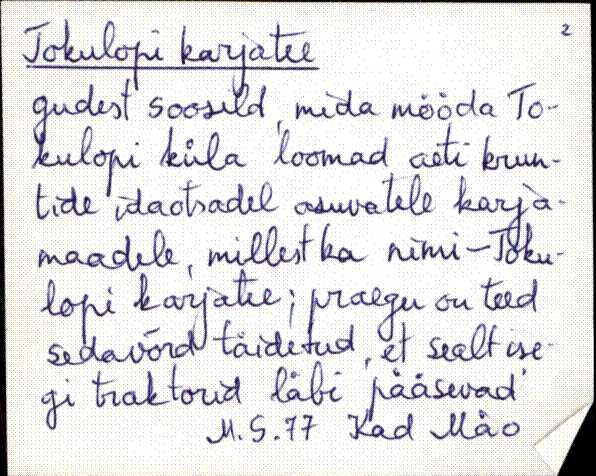 2
Tokulopi karjatee
gudest soosild, mida mööda To-
kulopi küla loomad aeti krun-
tide idaotsadel asuvatele karja-
maadele, millest ka nimi - Toku-
lopi karjatee; praegu on teed
sedavõrd täidetud, et sealt ise-
gi traktorid läbi pääsevad
M.S.77 Kad Mäo